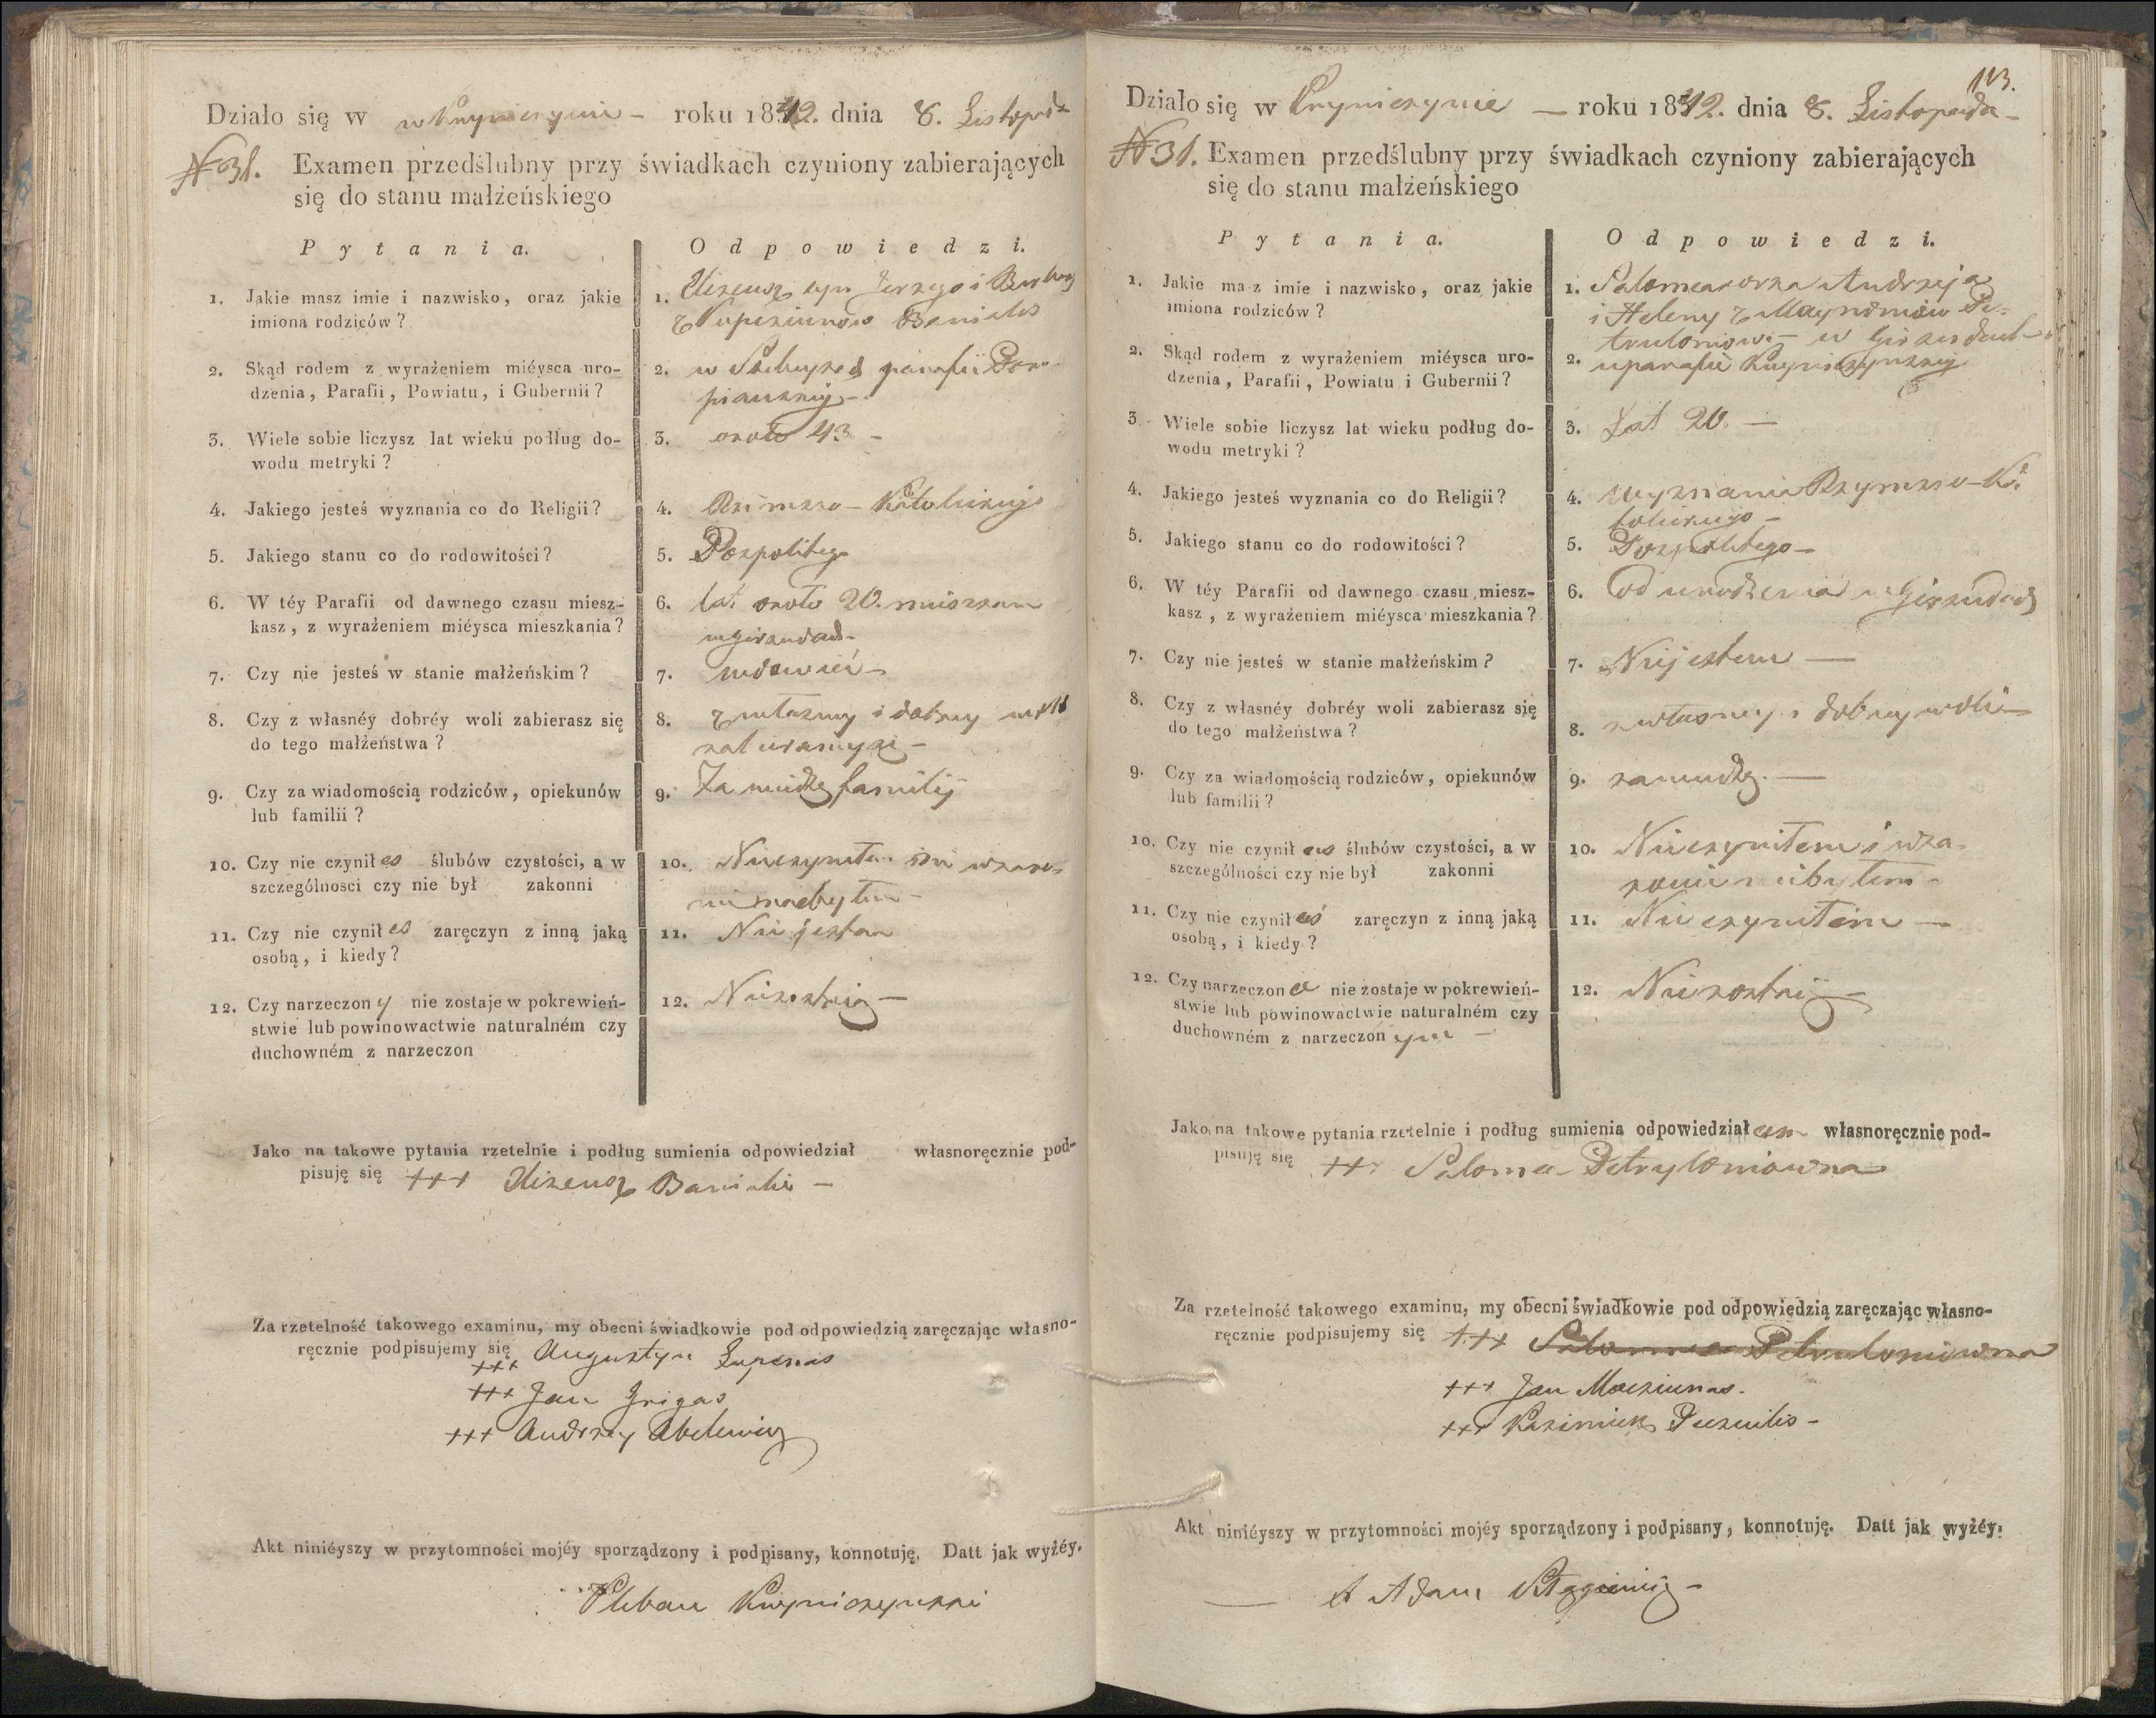 Działo się w w Kryniczynie – roku 1842. dnia 8. Listopada
N 31. Examen przedślubny przy świadkach czyniony zabierających
się do stanu małżeńskiego
Pytania.
Odpowiedzi.
1. Jakie masz imie i nazwisko, oraz jakie
imiona rodziców?
1. syn Jerzego i
2. Skąd rodem z wyrażeniem miéysca uro-
dzenia, Parafii, Powiatu, i Gubernii?
2. w parafii
3. Wiele sobie liczysz lat wieku podług do-
wodu metryki?
3. około 43 –
4. Jakiego jesteś wyznania co do Religii?
4. Rzimsko – Katolickiego
5. Jakiego stanu co do rodowitości?
5. Pospolitego
6. W téy Parafii od dawnego czasu miesz-
kasz, z wyrażeniem miéysca mieszkania?
6. lat około 20. mieszkam
7. Czy nie jesteś w stanie małżeńskim?
7. wdowiec –
8. Czy z własnéy dobréy woli zabierasz się
do tego małżeństwa?
8. z własney i dobrey woli
9. Czy za wiadomością rodziców, opiekunów
lub familii?
9. Za wiedzą familij
10. Czy nie czynił es ślubów czystości, a w
szczególnosci czy nie był zakonni
10. Nieczyniłem
11. Czy nie czynił es zaręczyn z inną jaką
osobą, i kiedy?
11. Nie jestem
12. Czy narzeczon y nie zostaje w pokrewień-
stwie lub powinowactwie naturalném czy
duchowném z narzeczon
12. Niezostaię –
Jako na takowe pytania rzetelnie i podług sumienia odpowiedział własnoręcznie pod-
pisuję się +++
Za rzetelność takowego examinu, my obecni świadkowie pod odpowiedzią zaręczając własno-
ręcznie podpisujemy się
+++ Augustyn
+++ Jan Grigas
+++ Andrzey Abelewicz
Akt niniéyszy w przytomności mojéy sporządzony i podpisany, konnotuję. Datt jak wyżéy.
Pleban
113.
Działo się w Kryniczynie – roku 1842. dnia 8. Listopada –
N 31. Examen przedślubny przy świadkach czyniony zabierających
się do stanu małżeńskiego
Pytania.
Odpowiedzi.
1. Jakie masz imie i nazwisko, oraz jakie
imiona rodziców?
1. Salomea corka Andrzeja
i Heleny z
2. Skąd rodem z wyrażeniem miéysca uro-
dzenia, Parafii, Powiatu i Gubernii?
2. w parafii
3. Wiele sobie liczysz lat wieku podług do-
wodu metryki?
3. Lat 20. –
4. Jakiego jesteś wyznania co do Religii?
4. wyznania Rzymsko-Ka-
tolickiego –
5. Jakiego stanu co do rodowitości?
5. Pospolitego –
6. W téy Parafii od dawnego czasu miesz-
kasz, z wyrażeniem miéysca mieszkania?
6. Od urodzenia
7. Czy nie jesteś w stanie małżeńskim?
7. Niejestem –
8. Czy z własnéy dobréy woli zabierasz się
do tego małżeństwa?
8. z własney i dobrey woli –
9. Czy za wiadomością rodziców, opiekunów
lub familii?
9. za wiedzą. –
10. Czy nie czynił as ślubów czystości, a w
szczególności czy nie był zakonni
10. Nieczyniłem i w za-
11. Czy nie czynił aś zaręczyn z inną jaką
osobą, i kiedy?
11. Nieczyniłem –
12. Czy narzeczon a nie zostaje w pokrewień-
stwie lub powinowactwie naturalném czy
duchowném z narzeczon ym –
12. Niezostaię –
Jako na takowe pytania rzetelnie i podług sumienia odpowiedział am własnoręcznie pod-
pisuję się +++ Salomea
Za rzetelność takowego examinu, my obecni świadkowie pod odpowiedzią zaręczając własno-
ręcznie podpisujemy się +++
+++ Jan Macziunas.
+++ Kazimierz
Akt niniéyszy w przytomności mojéy sporządzony i podpisany, konnotuję. Datt jak wyżéy.
X Adam